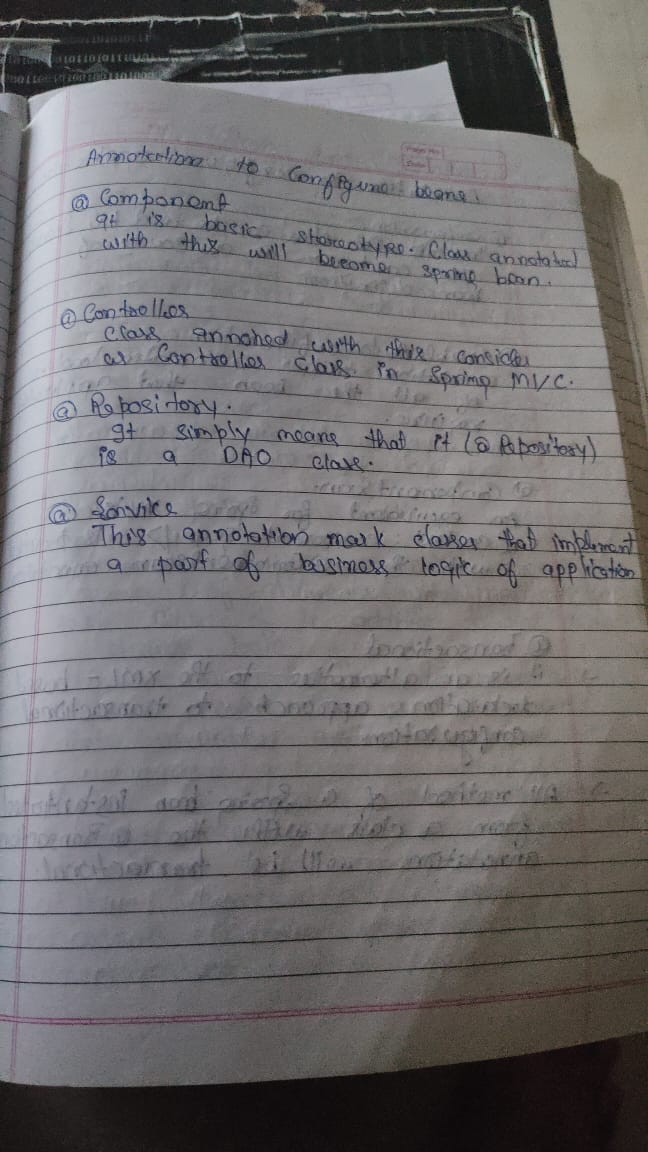 Annotation to Configure beans.
@ Component
It is basic stereotype. Class annotated
with this will become spring bean.
@ Controller
class annoned with this consider
as Controller class in Spring MVC.
@ Repository.
It simply means that it (@ Repository)
is a DAO class.
@ Service
This annotation mark classes that implement
a part of business logic of application